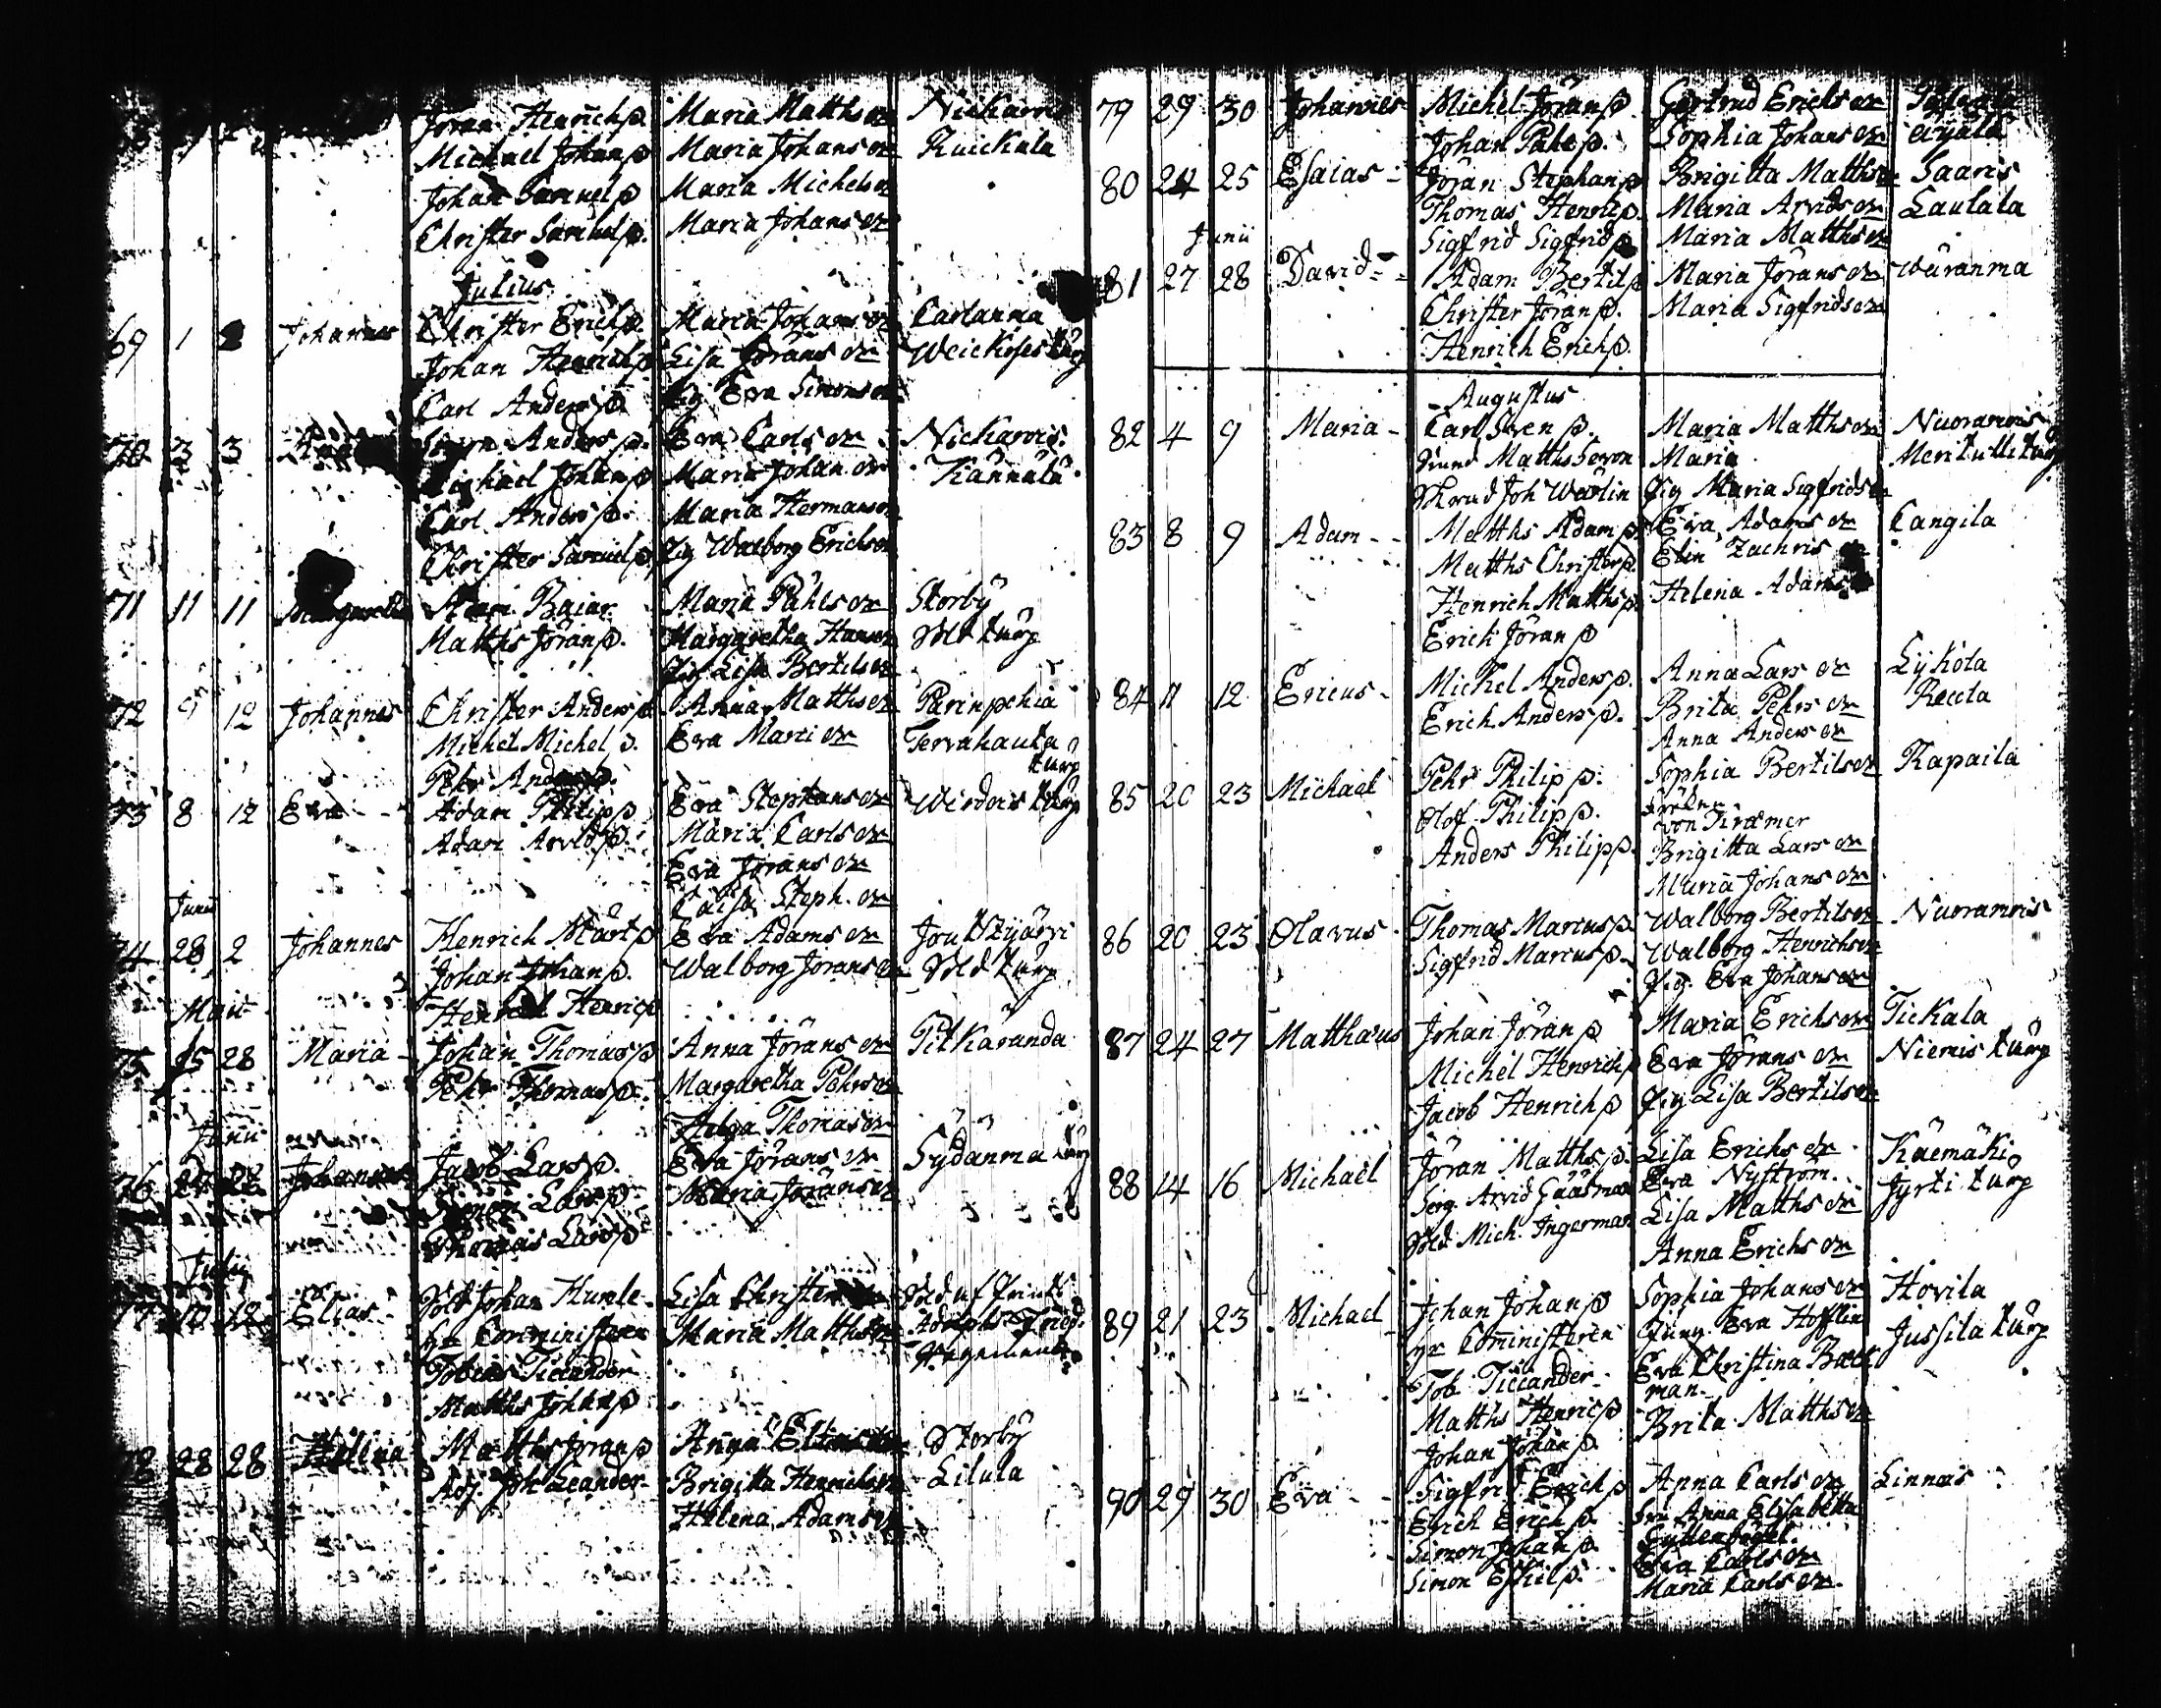 Jöran Henrichsß. Maria Matths er Nickarris
Michael Johanß Maria Johans er Ruickala
Johan Samuelß Maria Michels er
Christer Samuelß. Maria Johans er
Julius
69 1 Johannes Christer Erichß Maria Johans er Carlanma
Johan Henrichß Lisa Jörans er Weickoses turp
Carl Andersß. Pig Eva Simons er
70 3 3 Andersß. Eva Carls er Nickarris
Michael Johanß Maria Johan er Kännälä
Carl Andersß. Maria Hermans er
Christer Samuelß Pig Walborg Erichs er
71 11 11 Margaretha Baiar Maria Påhls er Storby
Matths Jöranß. Margaretha Hans er Sold turp
Pig Lisa Bertils er
72 9 12 Johannes Christer Andersß Anna Matths er Parinpehia
Michel Michelß. Eva Marci er Tervahauta
turp
Pehr Andersß.
73 8 12 Eva - - Adam Philipß Eva Stephans er Wirdois turp
Adam Arvidß. Maria Carls er
Eva Jörans er
Caisa Steph. er
Junii
74 28 2 Johannes Henrich Mårtß Eva Adams er Joutzijärvi
Johan Johanß. Walborg Jörans er Sold turp
Henricß
Maii
75 15 28 Maria - Johan Thomasß Anna Jörans er Pitkäranda
Pehr Thomasß. Margaretha Pehrs er
Helga Thomas er
Junii
76 Johannes Jacob Larsß. Eva Jörans er Sydänma turp
Simon Larsß Maria Jörans er
Thomas Larsß
Julii
77 10 12 Elias Sold Johan Humle Lisa Christer Sold af Printz
hr Comministern Maria Matths er Adolphs Fried.
Tobias Ticcander Regemente
Matths Johanß
78 28 28 Helena Matths Jöranß Anna Storby
Adj. Joh Leander Brigitta Henrichs er Lilula
Helena Adams er
79 29 30 Johannes Michel Jöranß. Gertrud Erichs er
Johan Påleß. Sophia Johans er äijälä
80 24 25 Esaias - Jöran Stephanß Brigitta Matths er Saaris
Thomas Henricß. Maria Arvids er Laulala
Junii
Sigfrid Sigfridß Maria Matths er
81 27 28 David - - Adam Bertilß Maria Jörans er Wäranma
Christer Jöranß. Maria Sigfrids er
Henrich Erichß.
Augustus
82 4 9 Maria - Carl Svenß. Maria Matths er Nuoramois
Matths Sevon Maria Meritulli turp
Joh Warlin Pig Maria Sigfrids er
83 8 9 Adam - - Matths Adamß Eva Adams er Cangila
Matths Christerß. Elin Zachris
Henrich Matthsß Helena Adams
Erich Jöranß
84 11 12 Ericus - Michel Andersß. Anna Lars er Lijköla
Erich Andersß. Brita Pehrs er Recla
Anna Anders er
85 20 23 Michael Pehr Philipß. Sophia Bertils er Rapaila
Olof Philipß. Fröken
von Kræmer
Anders Philipß. Brigitta Lars er
Maria Johans er
86 20 23 Olavus Thomas Marcusß. Walborg Bertils er Nuoramois
Sigfrid Marcusß. Walborg Henrichs er
Pig. Eva Johans er
87 24 27 Matthæus Johan Jöranß Maria Erichs er Tickala
Michel Henrichß Eva Jörans er Niemis turp
Jacob Henrichß Pig Lisa Bertils er
88 14 16 Michael Jöran Matthsß. Lisa Erichs er Käemäki
Serg. Arvid Gääsman Eva Nyström Jyrti turp
Sold. Mich. Ingerman Lisa Matths er
Anna Erichs er
89 21 23 Michael Johan Johanß Sophia Johans er Hovila
hr Comministern Jung. Eva Hofflin Jussila turp
Tob. Ticcander Eva Christina Back
man
Matths Henricß Brita Matths er
Johan Johanß
90 29 30 Eva - Sigfrid Erichß Anna Carls er Linnais
Erich Erichß Fru Anna Elisabetta
Simon Johanß Gyllenbögel
Simon Eskilß. Eva Carls er
Maria Carls er.